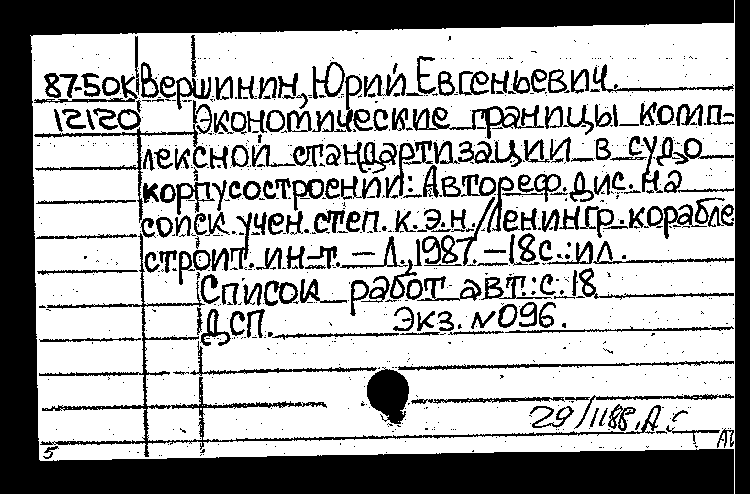 87-50к Вершинин, Юрий Евгеньевич.
12120 Экономические границы комп=
лексной стандартизации в судо
корпусостроении: Автореф. дис. на
соиск. учен. степ. к.э.н. /Ленингр. корабле
строит. ин-т. – Л., 1987. – 18с.: ил.
Список работ авт.: с. 18
ДСП. Экз. №096.
29/1188.А.
5